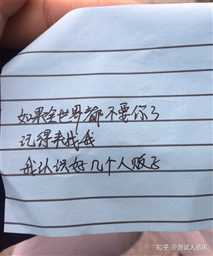 如果全世界都不要你了
记得来找我
我认识好几个人贩子
知乎